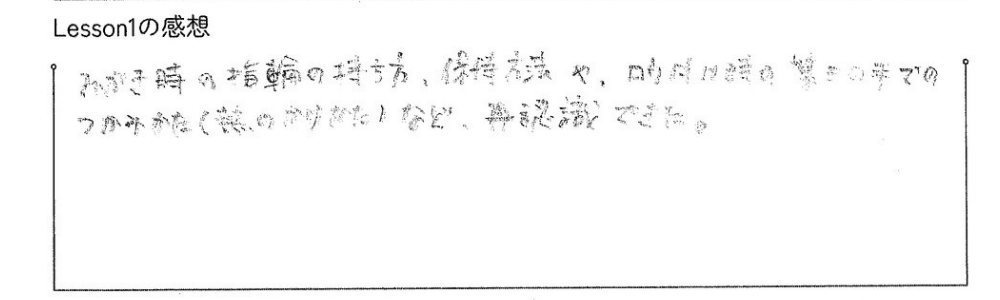 Lesson1の感想
みがき時の指輪の持ち方、保持方法や、ロウ付け時の の手での
つかみかた(熱のかけかた)など、再認識できた。